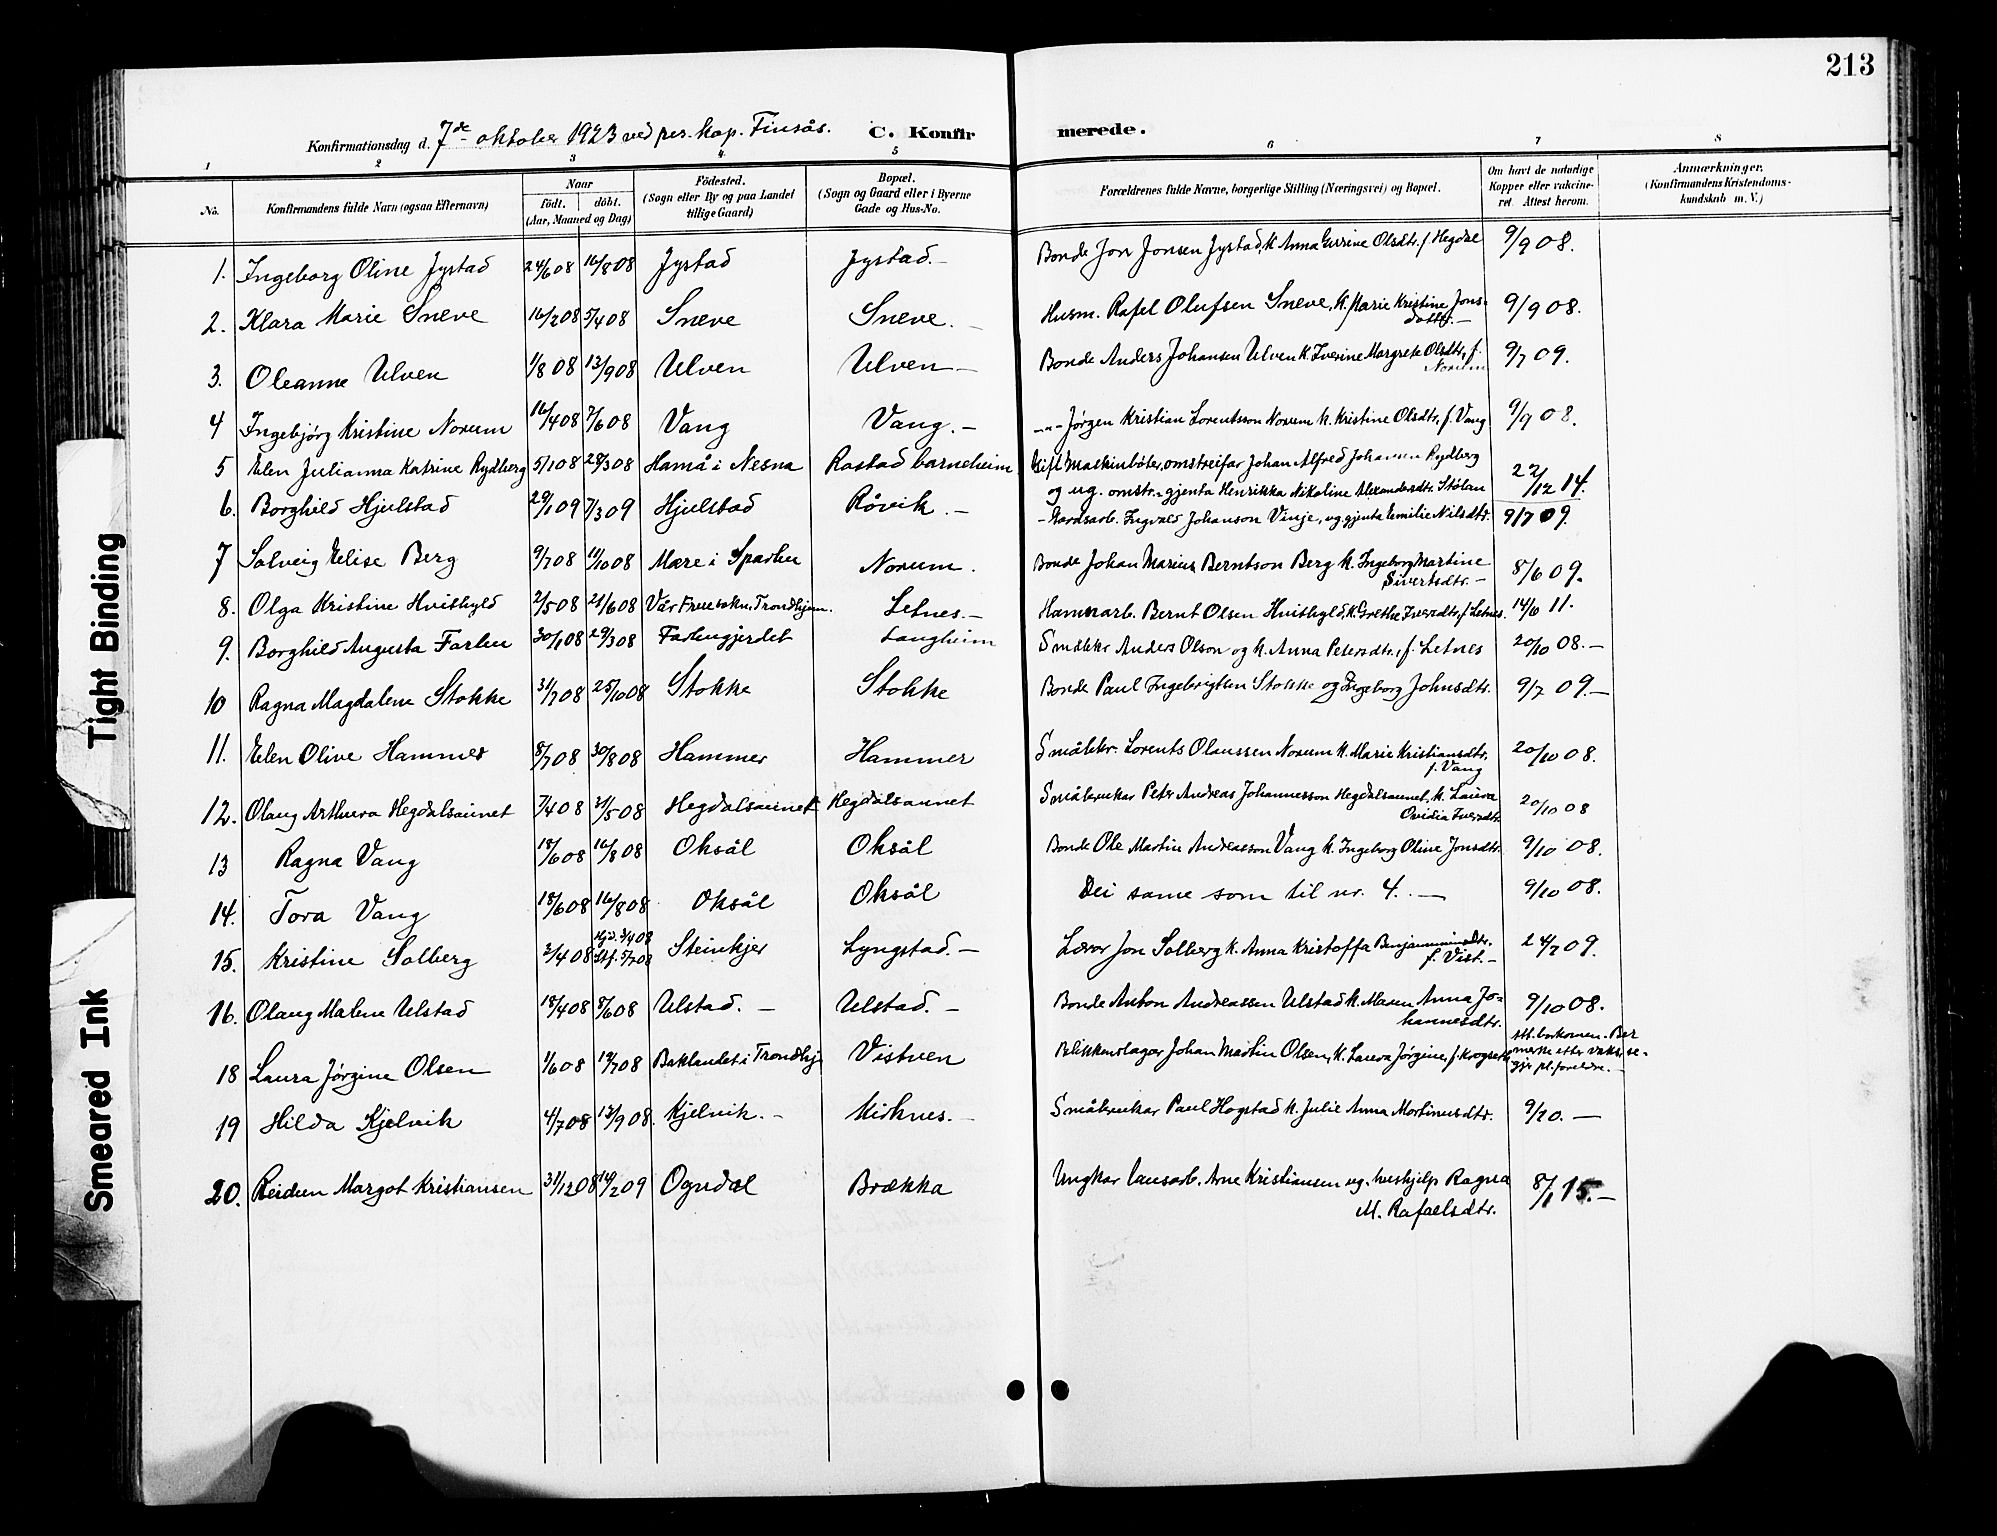 213
Konfirmationsdag d. 7de oktober 1923 ved pers. kap. Finsås. C. Konfirmerede.
1 2 3 4 5 6 7 8
No. Konfirmandens fulde Navn (ogsaa Efternavn) Naar født. døbt. (Aar, Maaned og Dag) Fødested. (Sogn eller By og paa Landet tillige Gaard) Bopæl. (Sogn og Gaard eller i Byerne Gade og Hus-No. Forældrenes fulde Navne, borgerlige Stilling (Næringsvei) og Bopæl. Om havt de naturlige Kopper eller vaccineret. Attest herom. Anmærkninger. (Konfirmandens Kristendomskundskab m. V.)
1. Ingeborg Oline Jystad 24/6 08 16/8 08 Jystad Jystad.- Bonde Jon Jonsen Jystad, k. Anna Gurine Olsdtr. f. Hegdal 9/9 08.
2. Klara Marie Sneve 16/2 08 5/4 08 Sneve Sneve.- Husm. Rafel Olufsen Sneve, k. Marie Kristine Jonsdottr.- 9/9 08.
3. Oleanne Ulven 1/8 08 13/9 08 Ulven Ulven- Bonde Anders Johansen Ulven k. Iverine Margrete Olsdtr., f. Norum 9/7 09.
4 Ingebjørg Kristine Norum 16/4 08 7/6 08 Vang Vang.- -"- Jørgen Kristian Lorentsson Norum k. Kristine Olsdtr, f. Vang 9/9 08.
5 Elen Julianna Katrine Rydberg 5/1 08 28/3 08 Hamå i Nesna Rostad barneheim Gift Maskinbøter, omstreifar Johan Alfred Johansen Rydberg og ug. omstr.-gjenta Henrikka Nikoline Alexandersdtr. Stølan 22/12 14.
6. Borghild Hjulstad 29/1 09 7/3 09 Hjulstad Røvik.- Gardsarb. Ingvald Johanson Vinje, ug. gjenta Emilie Nilsdtr. 9/7 09.
7 Solveig Elise Berg 9/7 08 11/10 08 Mære i Sparbu Norum. Bonde Johan Marius Berntson Berg k. Ingeborg Martine Sivertsdtr.- 8/6 09.
8. Olga Kristine Hvitbyld 2/5 08 21/6 08 Vår Fruesokn, Trondhjem. Letnes.- Hamnarb. Bernt Olsen Hvitbyld, k. Grethe Iversdtr, f. Letnes. 14/6 11.
9. Borghild Augusta Farbu 30/1 08 29/3 08 Farbugjerdet Langheim Småbkr Anders Olson og k. Anna Petersdtr., f. Letnes 20/10 08.-
10 Ragna Magdalene Stokke 31/7 08 25/10 08 Stokke Stokke Bonde Paul Ingebrigtsen Stokke og Ingeborg Johnsdtr. 9/7 09.-
11. Elen Olive Hammer 8/7 08 30/8 08 Hammer Hammer Småbkr. Lorents Olaussen Norum k. Marie Kristiansdtr. f. Vang 20/10 08.
12. Olaug Arthura Hegdalsaunet 7/4 08 31/5 08 Hegdalsaunet Hegdalsaunet Småbrukar Peter Andreas Johannesson Hegdalsaunet, k. Laura Ovidia Iversdtr. 20/10 08
13 Ragna Vang 18/6 08 16/8 08 Oksål Oksål Bonde Ole Martin Andreasson Vang k. Ingeborg Oline Jonsdtr. 9/10 08.
14. Tora Vang 18/6 08 16/8 08 Oksål Oksål Dei same som til nr. 4.- 9/10 08.
15. Kristine Solberg 3/4 08 Hjd. 3/4 08 Stf. 5/7 08 Steinkjer Lyngstad.- Lærar Jon Solberg k. Anna Kristoffa Benjaminsdtr. f. Vist.- 24/7 09.
16. Olaug Malene Ulstad 18/4 08 8/6 08 Ulstad.- Ulstad.- Bonde Anton Andreassen Ulstad k. Maren Anna Johannesdtr. 9/10 08.
18 Laura Jørgine Olsen 1/6 08 19/7 08 Baklandet i Trondhj. Vistven Blikkenslagar Johan Martin Olsen, k. Laura Jørgine, f. Att. bortkomen. Ber merke etter vaks. segjr pl. foreldre.-
19 Hilda Kjelvik 4/7 08 13/9 08. Kjelvik.- Kirknes.- Småbrukar Paul Hogstad k. Julie Anna Mortinusdtr. 9/20.-
20. Reidun Margot Kristiansen 31/12 08 14/2 09 Ogndal Brækka Ungkar lausarb. Arne Kristiansen ug. hushjelp Ragna M. Rafaelsdtr. 8/1 15.-
Tight Binding
Smeared Ink